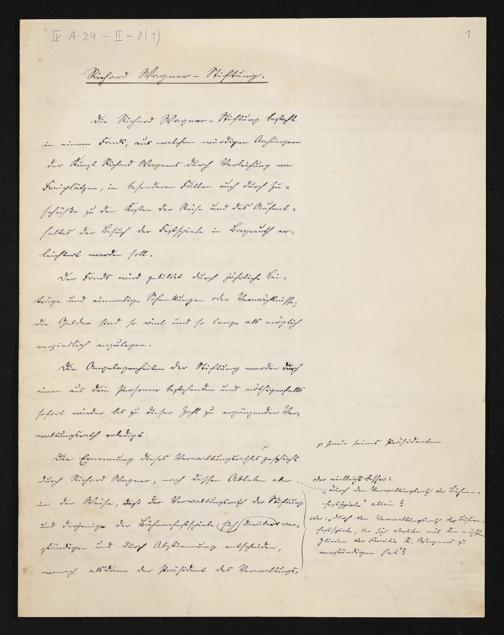 IV A 29 – II – 8(1)
1
Richard Wagner – Stiftung.
Die Richard Wagner-Stiftung besteht
in einem Fonds, aus welchem würdigen Anhängern
der Kunst Richard Wagners durch Verleihung von
Freiplätzen, in besonderen Fällen auch durch Zu-
schüsse zu den Kosten der Reise und des Aufent-
haltes der Besuch der Festspiele in Bayreuth er-
leichtert werden soll.
Der Fonds wird gebildet durch jährliche Bei-
träge und einmalige Schenkungen oder Vermächtnisse;
die Gelder sind so viel und so lange als möglich
verzinslich anzulegen.
Die Angelegenheiten der Stiftung werden durch
einen aus drei Personen bestehenden und nöthigenfalls
sofort wieder bis zu dieser Zahl zu ergänzenden Ver-
waltungsrath erledigt.
Die Ernennung dieses Verwaltungsrathes geschieht
durch Richard Wagner, nach dessen Ableben aber
in der Weise, dass der Verwaltungsrath der Stiftung
und derjenige der Bühnenfestspiele sich darüber ver-
ständigen und durch Abstimmung entscheiden,
wonach alsdann der Präsident des Verwaltungs-
sowie seines Präsidenten
oder vielleicht besser:
durch den Verwaltungsrath der Bühnen-
festspiele allein?
oder: durch den Verwaltungsrath der Bühnen-
festspiele, der sich darüber mit den
Gliedern der Familie R. Wagners zu
verständigen hat?